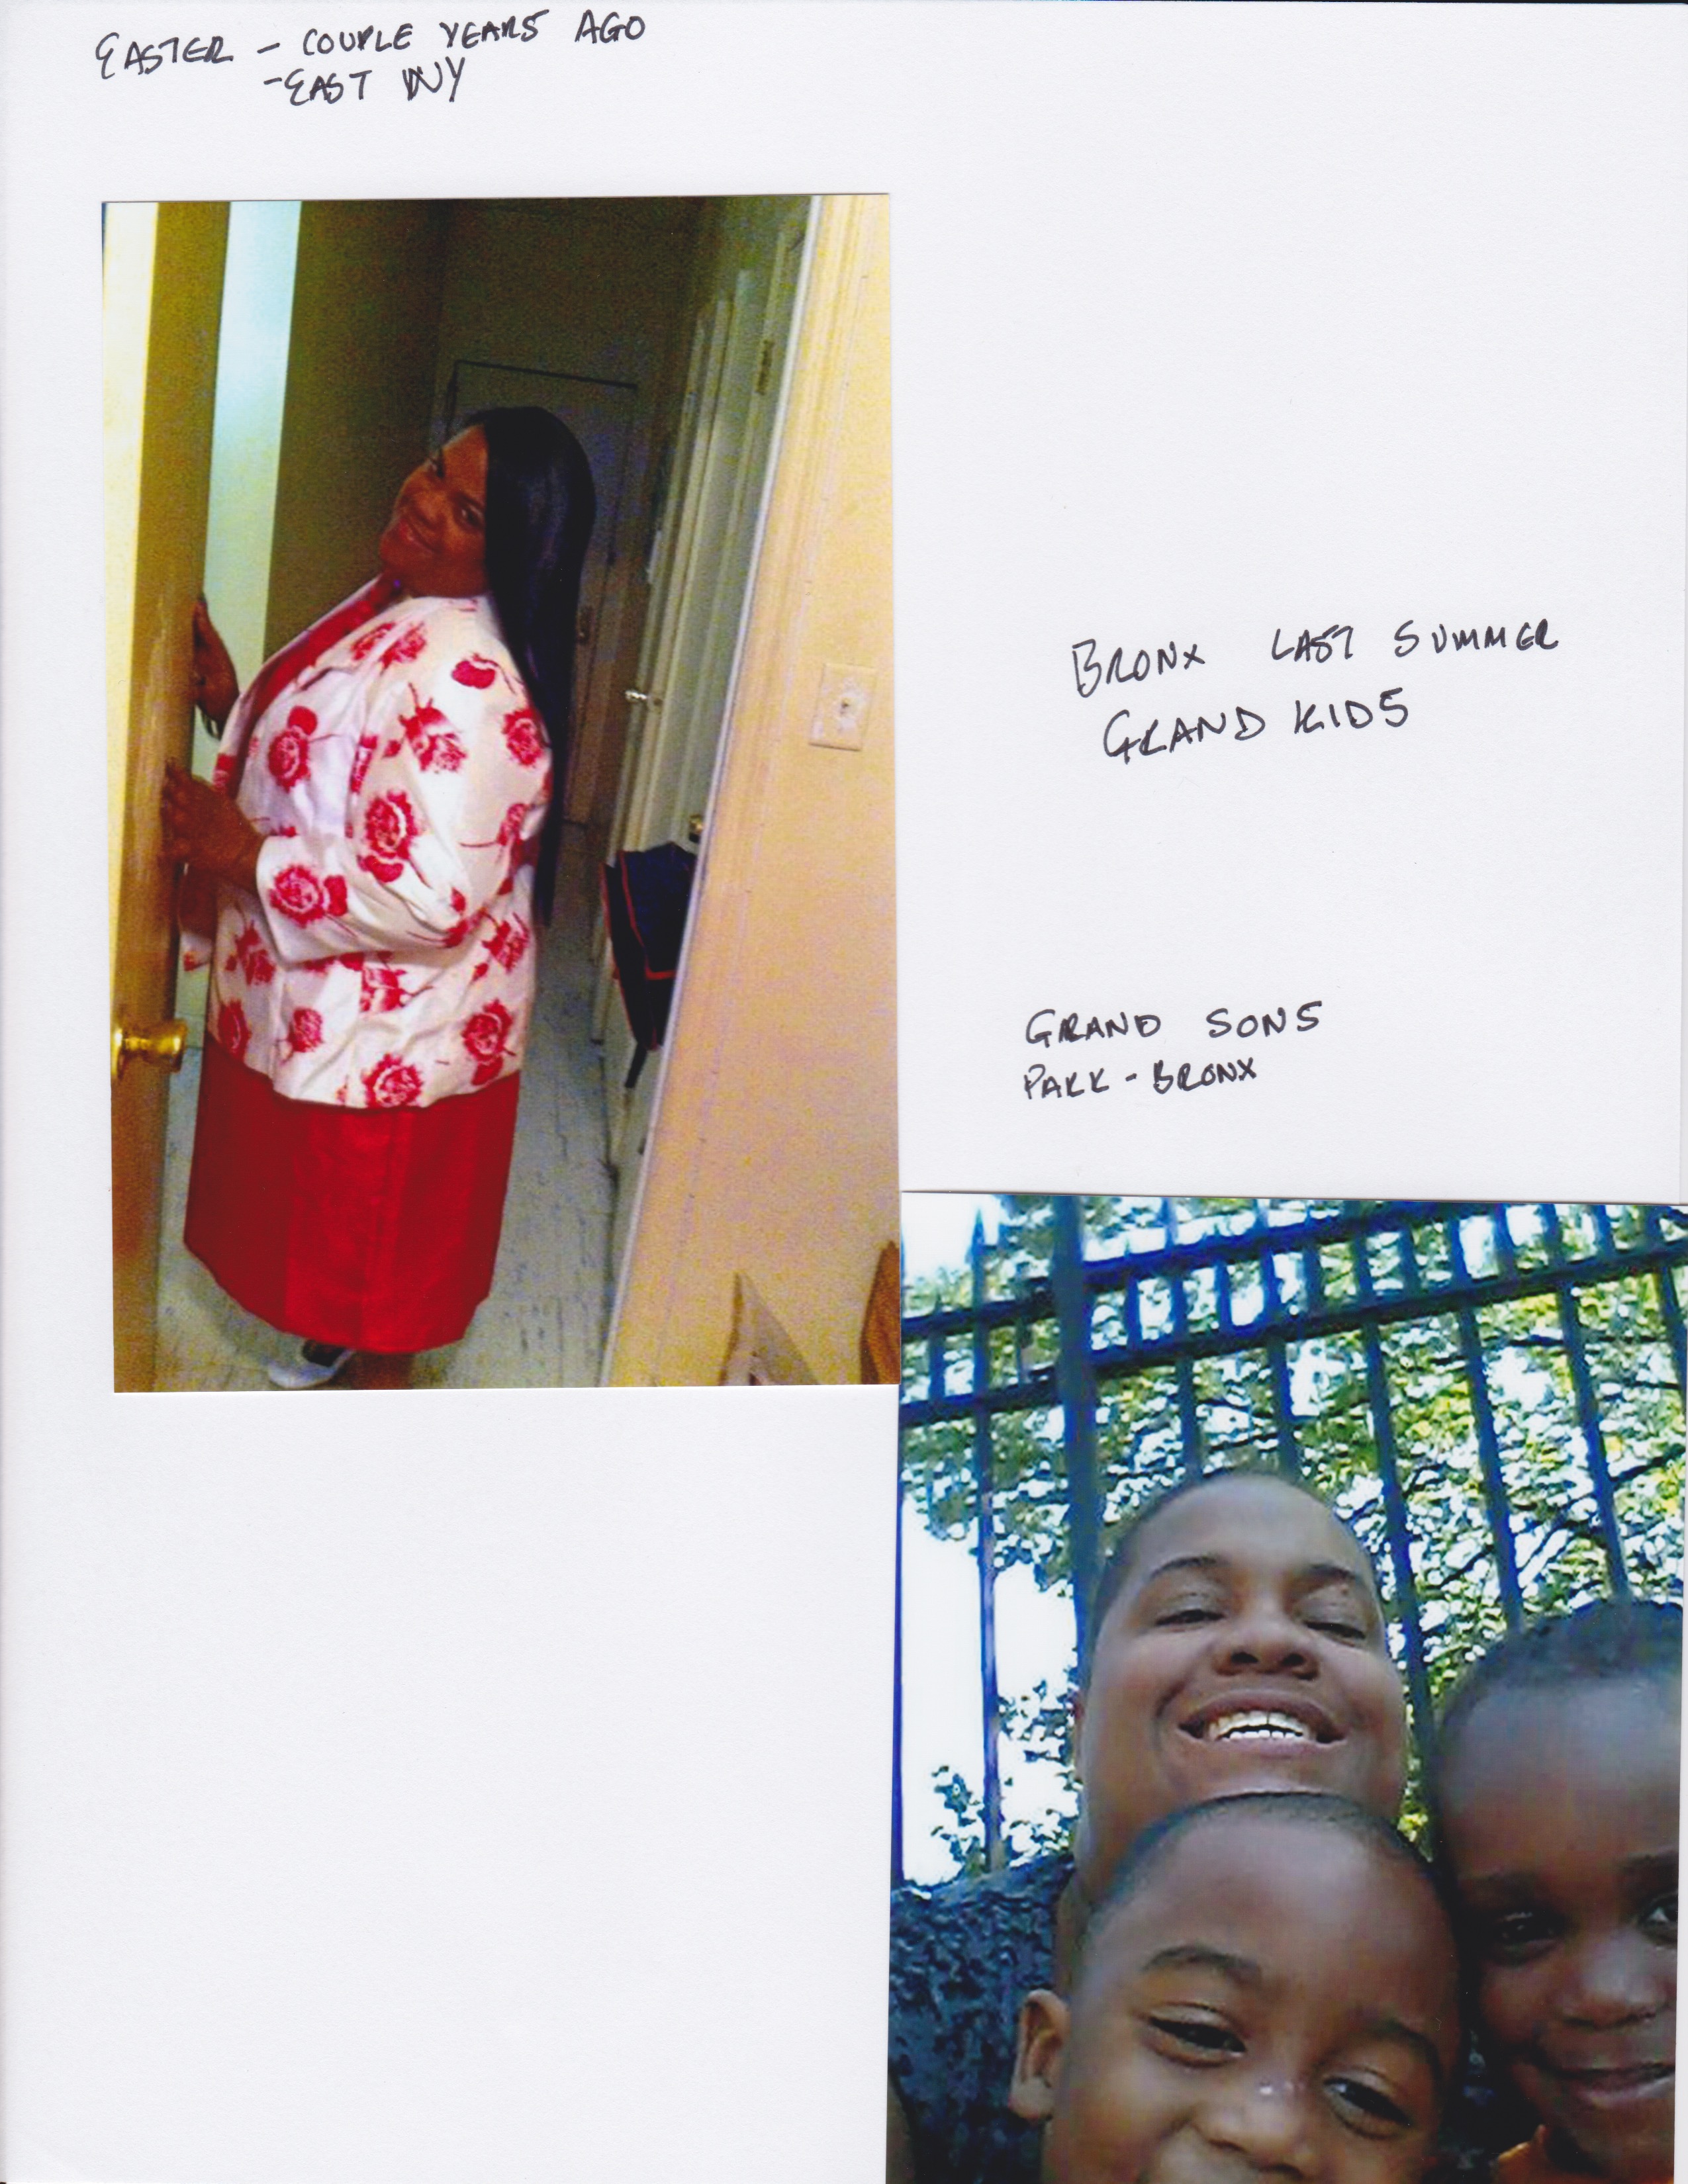 EASTER - COUPLE YEARS AGO
- EAST NY
BRONX LAST SUMMER
GRAND KIDS
GRAND SONS
PARK - BRONX